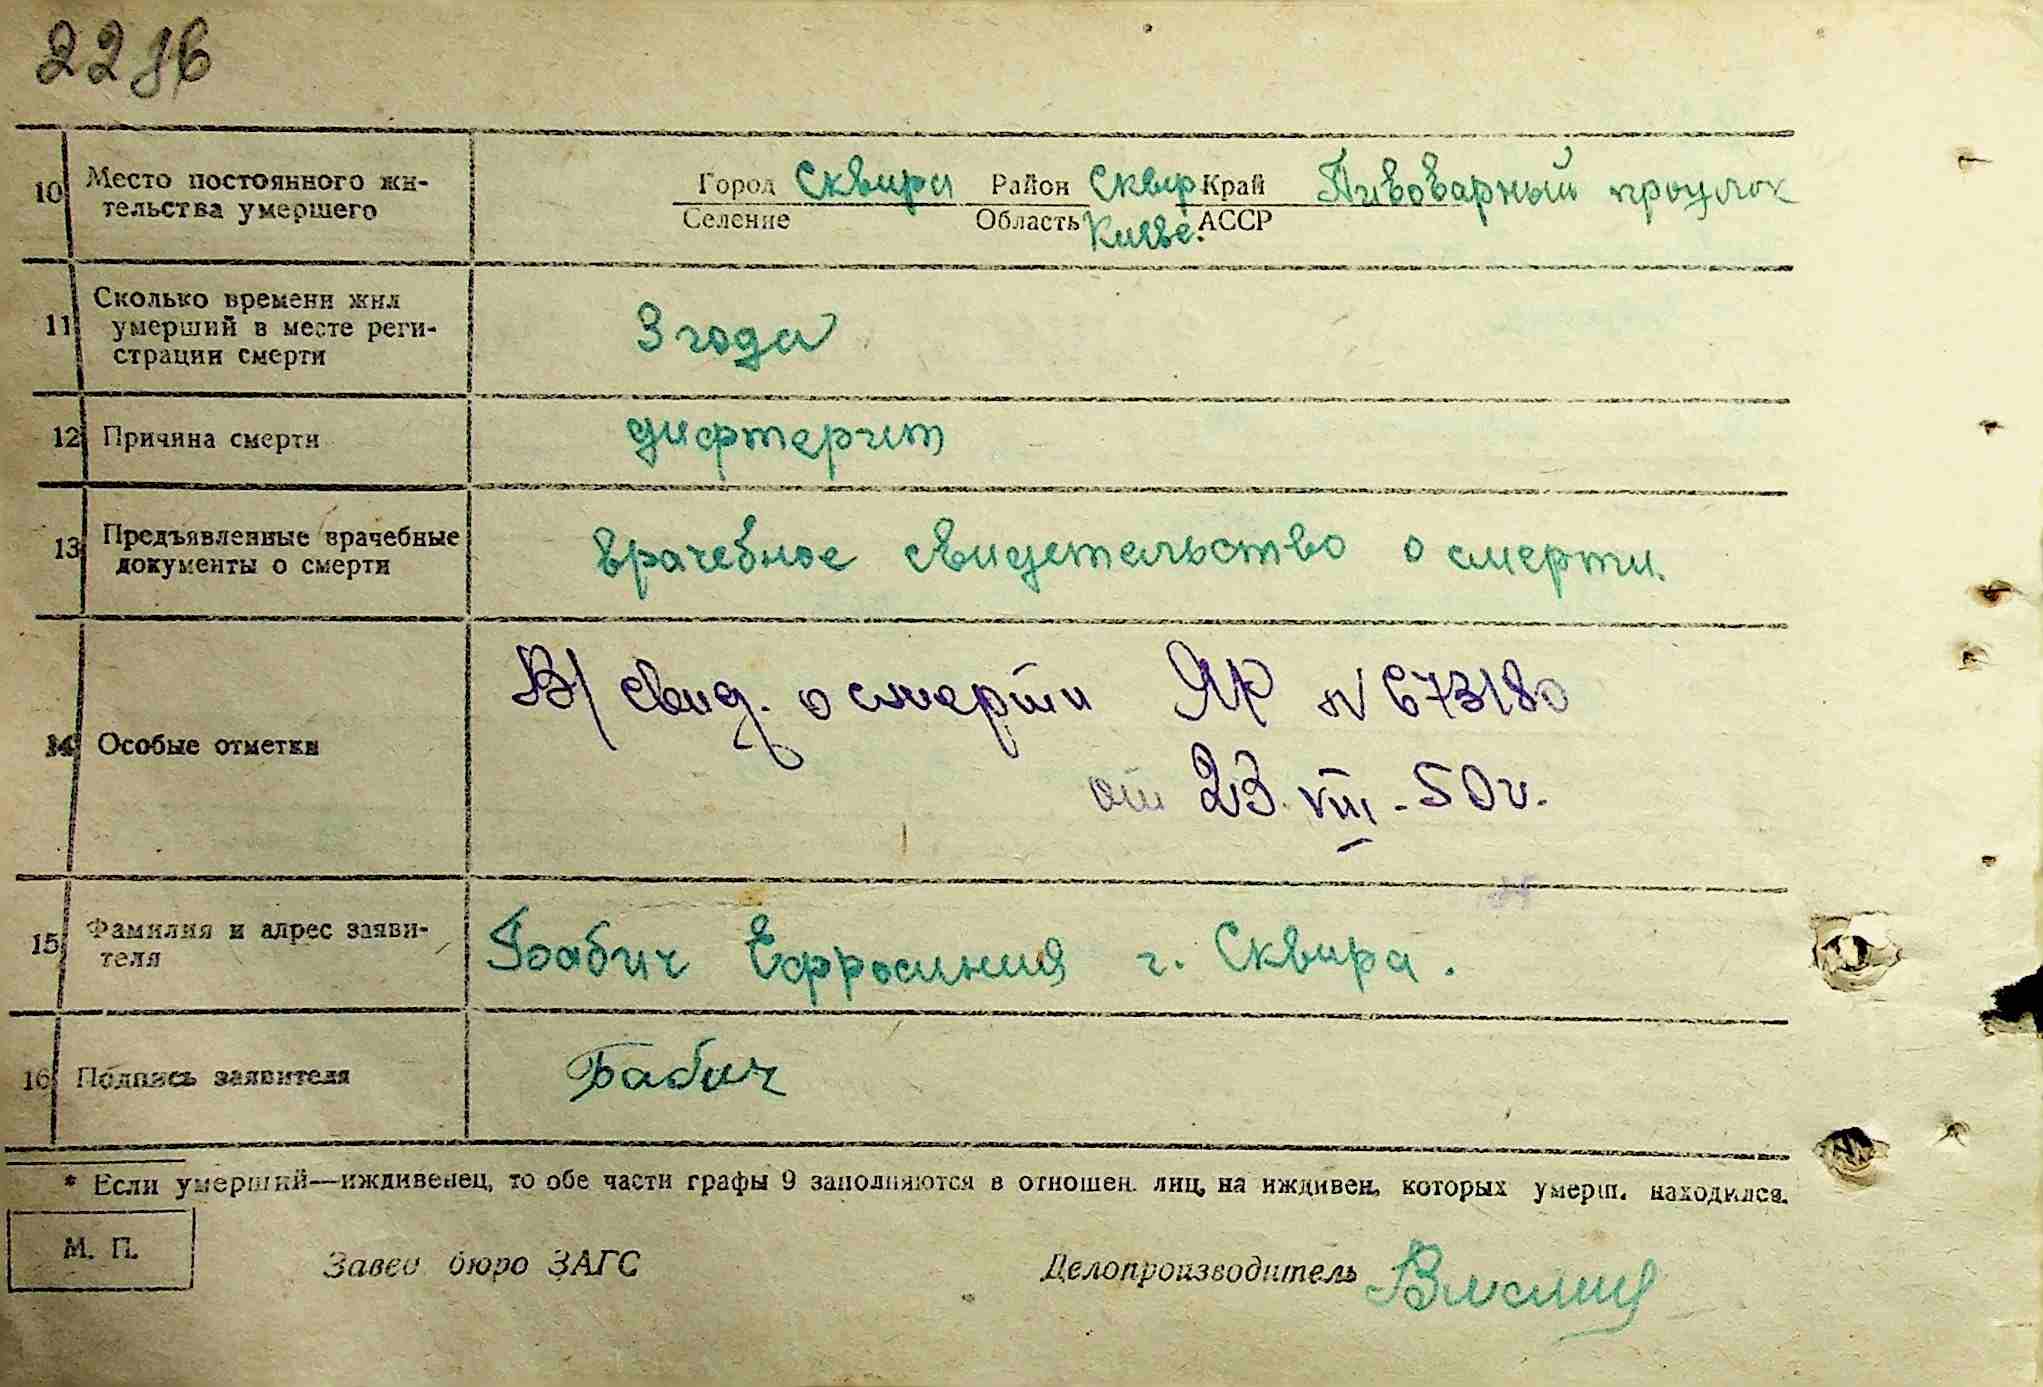 10 Место постоянного жи-
тельства умершего
Город Сквира Район Сквир Край Пивоварный проулок
Селение Область Киевс. АССР
11 Сколько времени жил
умерший в месте реги-
страции смерти
3 года
12 Причина смерти
дифтерит
13 Предъявленные врачебные
документы о смерти
врачебное свидетельство о смерти.
14 Особые отметки
В/ свид. о смерти ЯР № 673180
от 23.VIII-50г.
15 Фамилия и адрес заяви-
теля
Бабич Ефросиния г. Сквира.
16 Подпись заявителя
Бабич
* Если умерший—иждивенец, то обе части графы 9 заполняются в отношен. лиц, на иждивен. которых умерш. находился.
М. П.
Завед бюро ЗАГС
Делопроизводитель